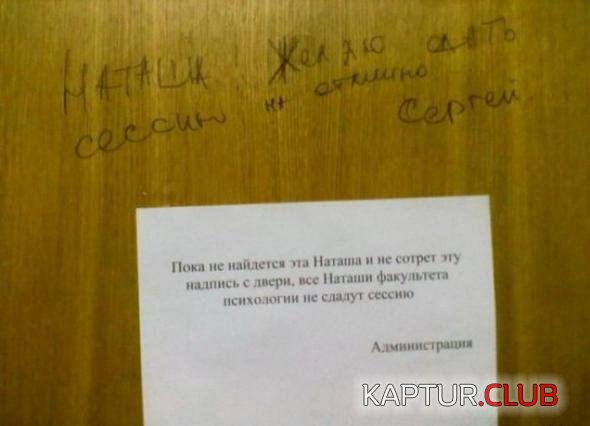 Наташа, Желаю сдать
сессию на отлично
Сергей.
Пока не найдется эта Наташа и не сотрет эту
надпись с двери, все Наташи факультета
психологии не сдадут сессию
Администрация
KAPTUR.CLUB